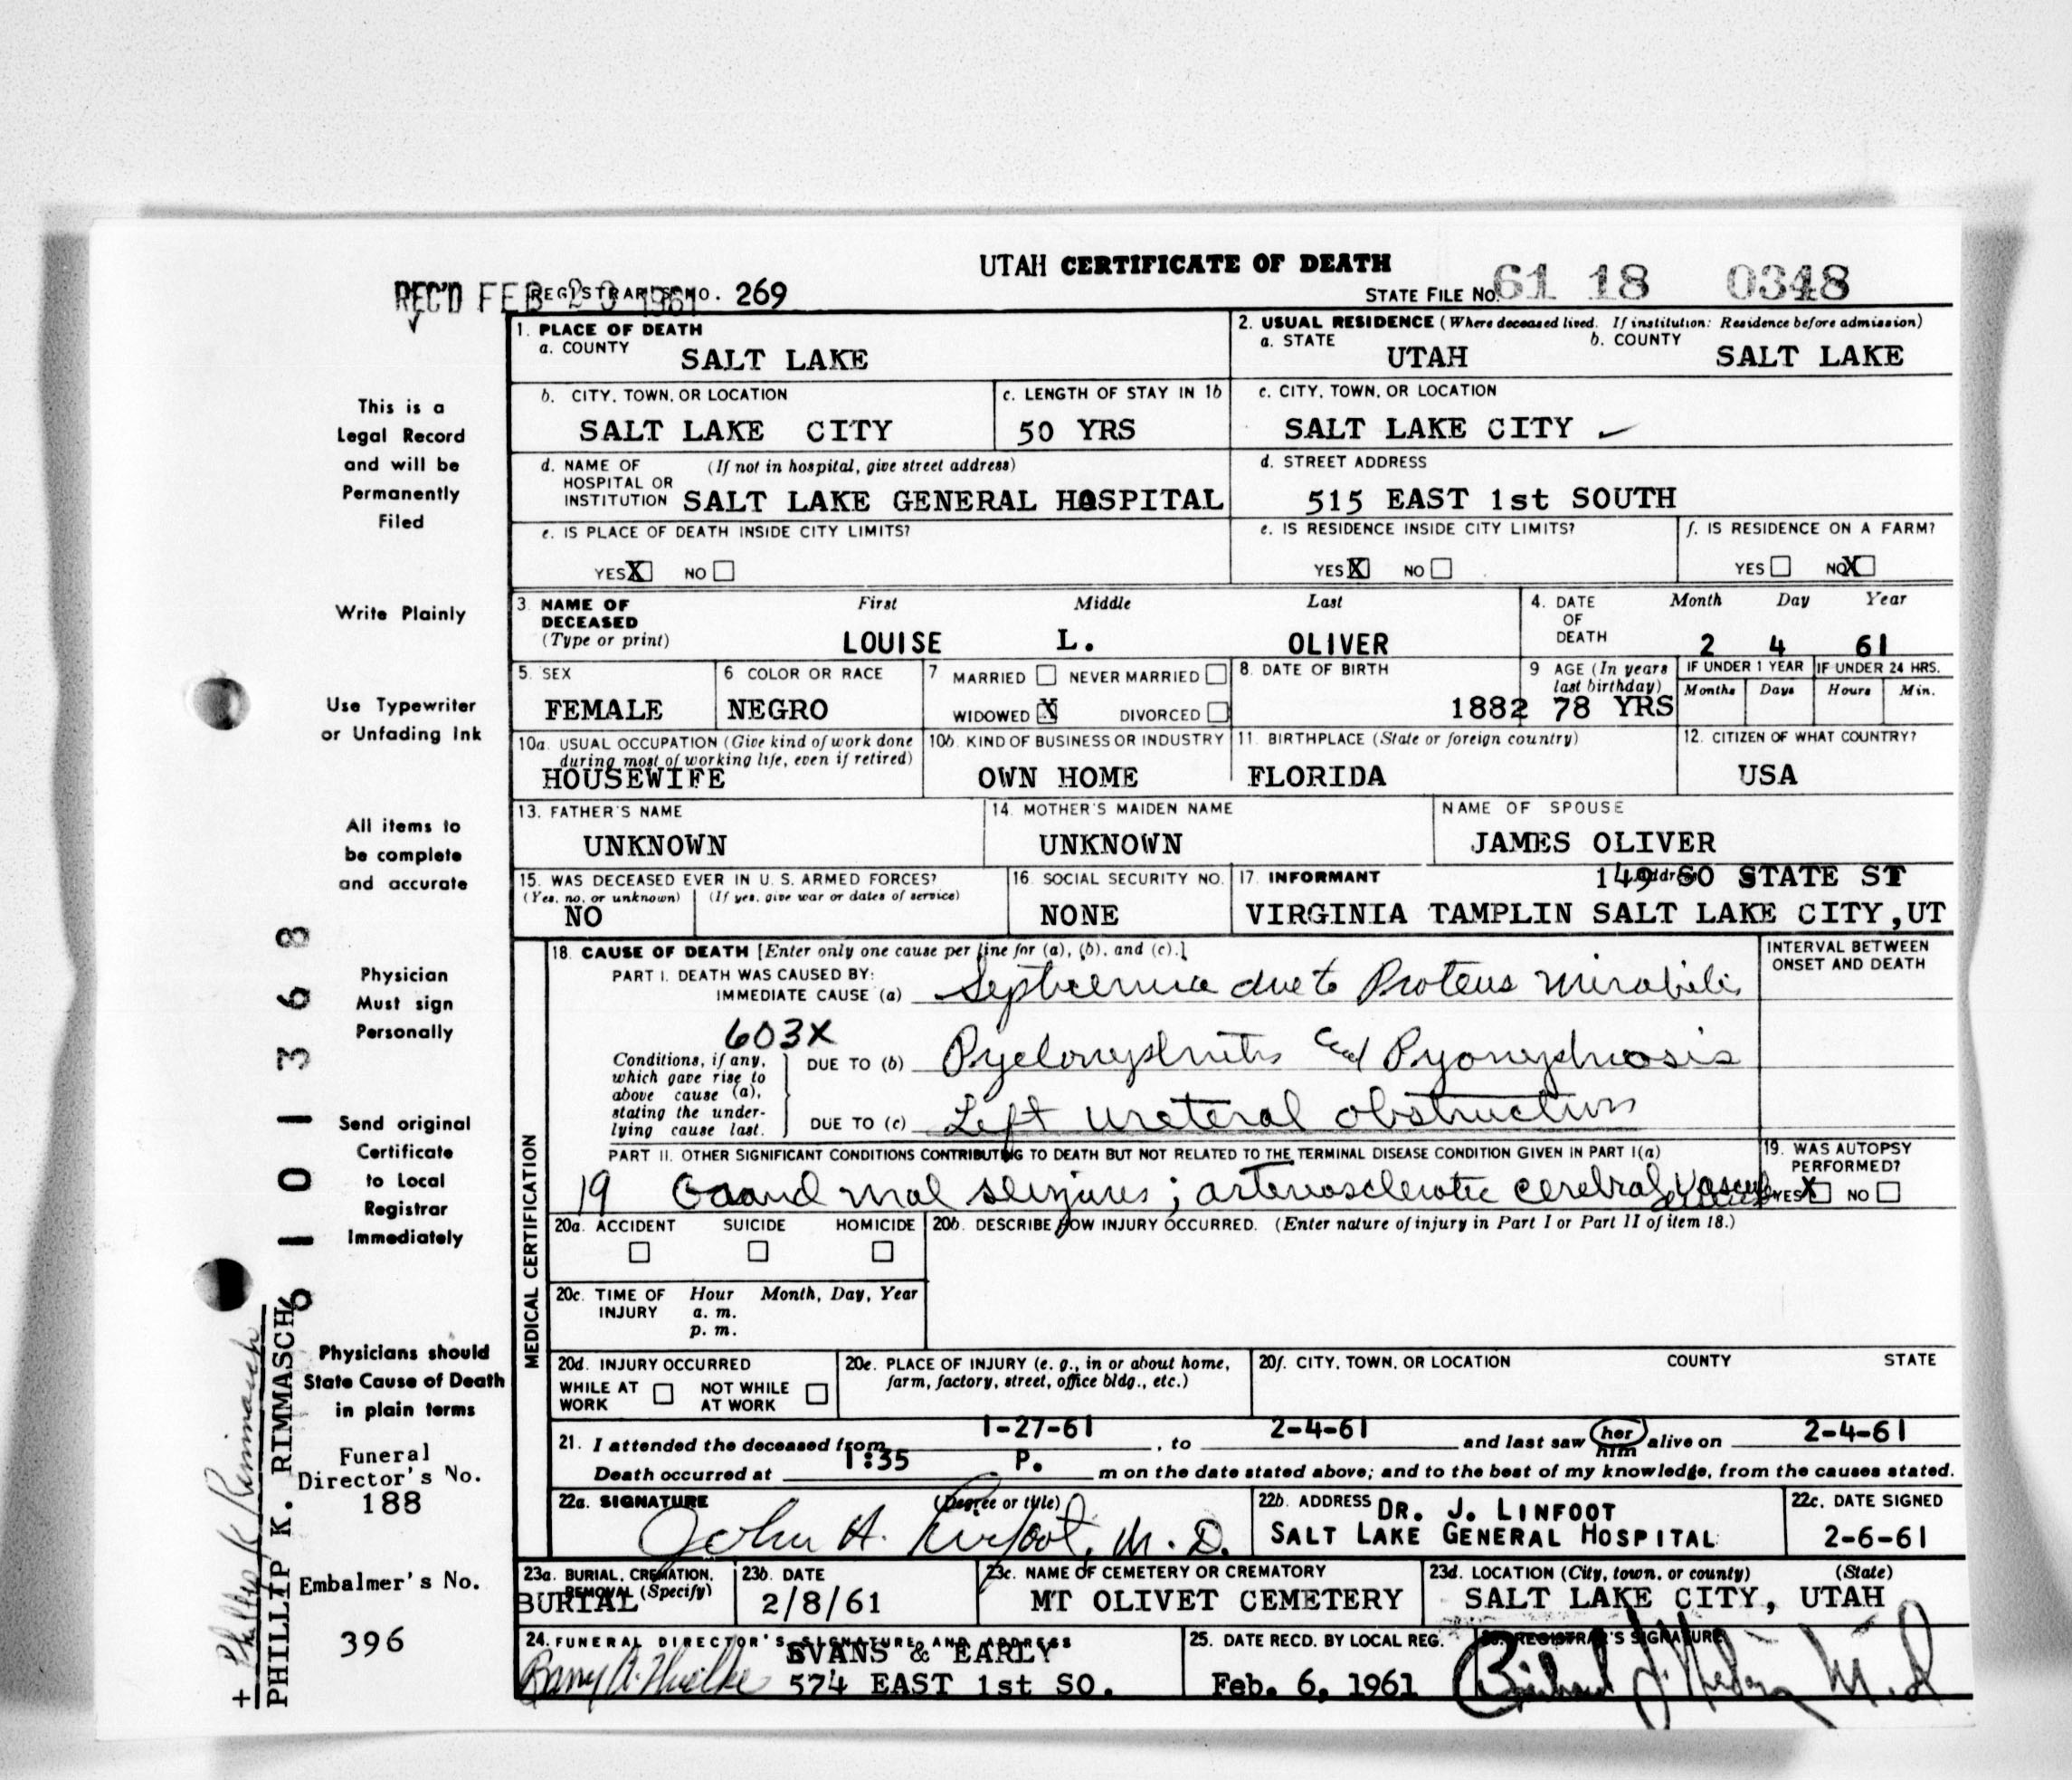 UTAH CERTIFICATE OF DEATH
REC'D FEB 20 1961 REGISTRAR'S NO. 269
STATE FILE NO. 61 18 0348
1. PLACE OF DEATH
a. COUNTY SALT LAKE
2. USUAL RESIDENCE (Where deceased lived. If institution: Residence before admission)
a. STATE UTAH b. COUNTY SALT LAKE
b. CITY, TOWN, OR LOCATION SALT LAKE CITY
c. LENGTH OF STAY IN 1b 50 YRS
c. CITY, TOWN, OR LOCATION SALT LAKE CITY
d. NAME OF HOSPITAL OR INSTITUTION (If not in hospital, give street address) SALT LAKE GENERAL HOSPITAL
d. STREET ADDRESS 515 EAST 1st SOUTH
e. IS PLACE OF DEATH INSIDE CITY LIMITS? YES X NO
e. IS RESIDENCE INSIDE CITY LIMITS? YES X NO
f. IS RESIDENCE ON A FARM? YES NO X
3. NAME OF DECEASED (Type or print) First Middle Last
LOUISE L. OLIVER
4. DATE OF DEATH Month Day Year
2 4 61
5. SEX FEMALE
6 COLOR OR RACE NEGRO
7 MARRIED NEVER MARRIED
WIDOWED X DIVORCED
8. DATE OF BIRTH 1882
9 AGE (In years last birthday) 78 YRS
IF UNDER 1 YEAR Months Days
IF UNDER 24 HRS. Hours Min.
10a. USUAL OCCUPATION (Give kind of work done during most of working life, even if retired) HOUSEWIFE
10b. KIND OF BUSINESS OR INDUSTRY OWN HOME
11. BIRTHPLACE (State or foreign country) FLORIDA
12. CITIZEN OF WHAT COUNTRY? USA
13. FATHER'S NAME UNKNOWN
14. MOTHER'S MAIDEN NAME UNKNOWN
NAME OF SPOUSE JAMES OLIVER
15. WAS DECEASED EVER IN U. S. ARMED FORCES?
(Yes, no, or unknown) (If yes, give war or dates of service)
NO
16. SOCIAL SECURITY NO. NONE
17. INFORMANT Address 149 SO STATE ST
VIRGINIA TAMPLIN SALT LAKE CITY, UT
MEDICAL CERTIFICATION
18. CAUSE OF DEATH [Enter only one cause per line for (a), (b), and (c).]
INTERVAL BETWEEN ONSET AND DEATH
PART I. DEATH WAS CAUSED BY:
IMMEDIATE CAUSE (a) Septicemia due to Proteus Mirabilis
603X
Conditions, if any, which gave rise to above cause (a), stating the underlying cause last.
DUE TO (b) Pyelonephritis and Pyonephrosis
DUE TO (c) Left ureteral obstruction
PART II. OTHER SIGNIFICANT CONDITIONS CONTRIBUTING TO DEATH BUT NOT RELATED TO THE TERMINAL DISEASE CONDITION GIVEN IN PART I(a)
19 Grand mal seizures; arteriosclerotic cerebral vascul
19. WAS AUTOPSY PERFORMED? YES X NO
20a. ACCIDENT SUICIDE HOMICIDE
20b. DESCRIBE HOW INJURY OCCURRED. (Enter nature of injury in Part I or Part II of item 18.)
20c. TIME OF INJURY Hour Month, Day, Year
a. m.
p. m.
20d. INJURY OCCURRED
WHILE AT WORK NOT WHILE AT WORK
20e. PLACE OF INJURY (e. g., in or about home, farm, factory, street, office bldg., etc.)
20f. CITY, TOWN, OR LOCATION COUNTY STATE
21. I attended the deceased from 1-27-61, to 2-4-61 and last saw her him alive on 2-4-61
Death occurred at 1:35 P. m on the date stated above; and to the best of my knowledge, from the causes stated.
22a. SIGNATURE (Degree or title) John H. Linfoot, M. D.
22b. ADDRESS DR. J. LINFOOT
SALT LAKE GENERAL HOSPITAL
22c. DATE SIGNED 2-6-61
23a. BURIAL, CREMATION, REMOVAL (Specify) BURIAL
23b. DATE 2/8/61
23c. NAME OF CEMETERY OR CREMATORY MT OLIVET CEMETERY
23d. LOCATION (City, town, or county) (State) SALT LAKE CITY, UTAH
24. FUNERAL DIRECTOR'S SIGNATURE AND ADDRESS
EVANS & EARLY
574 EAST 1st SO.
25. DATE RECD. BY LOCAL REG. Feb. 6, 1961
26. REGISTRAR'S SIGNATURE
This is a
Legal Record
and will be
Permanently
Filed
Write Plainly
Use Typewriter
or Unfading Ink
All items to
be complete
and accurate
Physician
Must sign
Personally
Send original
Certificate
to Local
Registrar
Immediately
Physicians should
State Cause of Death
in plain terms
Funeral
Director's No.
188
Embalmer's No.
396
6 1 0 1 3 6 8
+ Phillip K Rimmasch
PHILLIP K. RIMMASCH